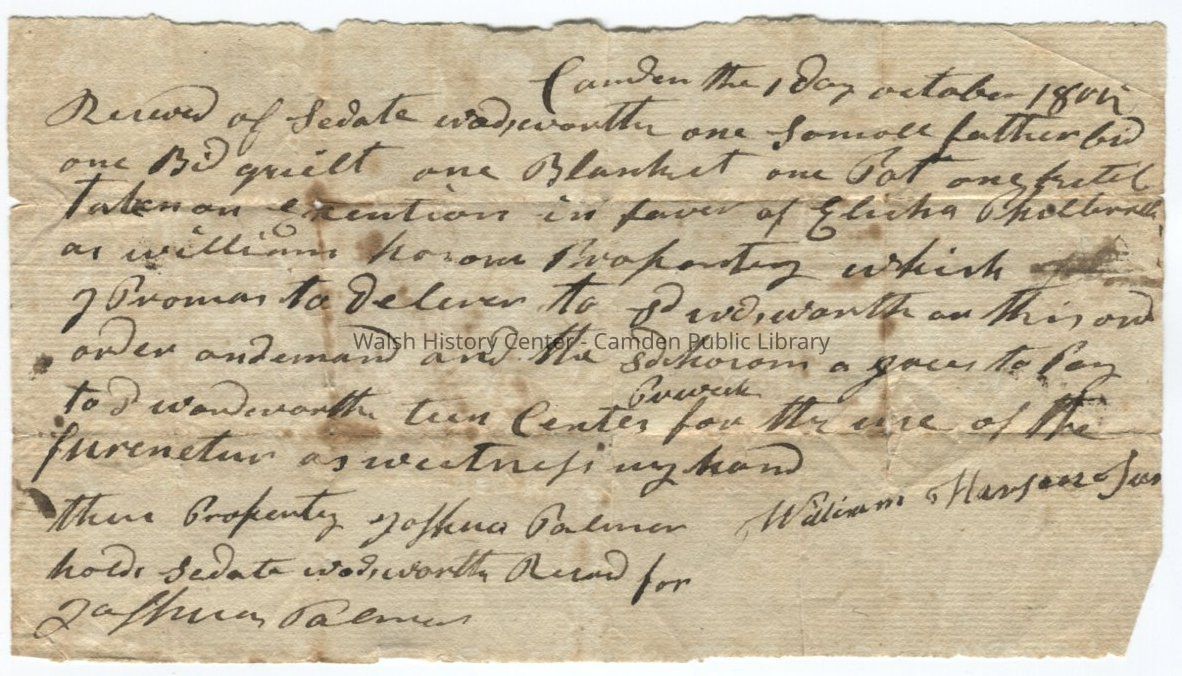 Camden the 1 day october
Receved of Sedate wadsworth one Somoll father bid
one Bid quilt one Blanket one Pot one
Taken on exention in faver of Elisha
as william Propertey which
J Promas to deliver to sd wdsworth or this ord
order on demand and the sd a grees to Pay
Pr week
to d wardsworth teen Centes for the use of the
furenetur as weetness my hand
William
these Property Joshua Palmer
holds Sedate wodsworth Recved for
Joshua Palmer
Walsh History Center - Camden Public Library